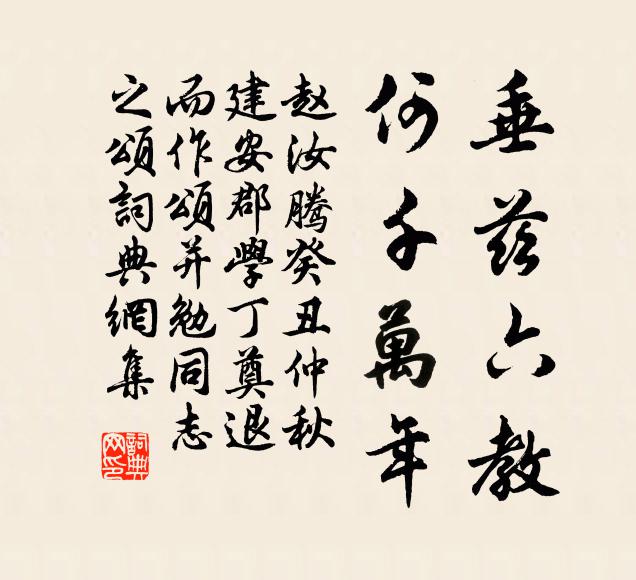 垂茲六教
何千萬年
赵汝腾癸丑仲秋
建安郡學丁奠退
而作頌并勉同志
之頌詞典網集
詞典网印